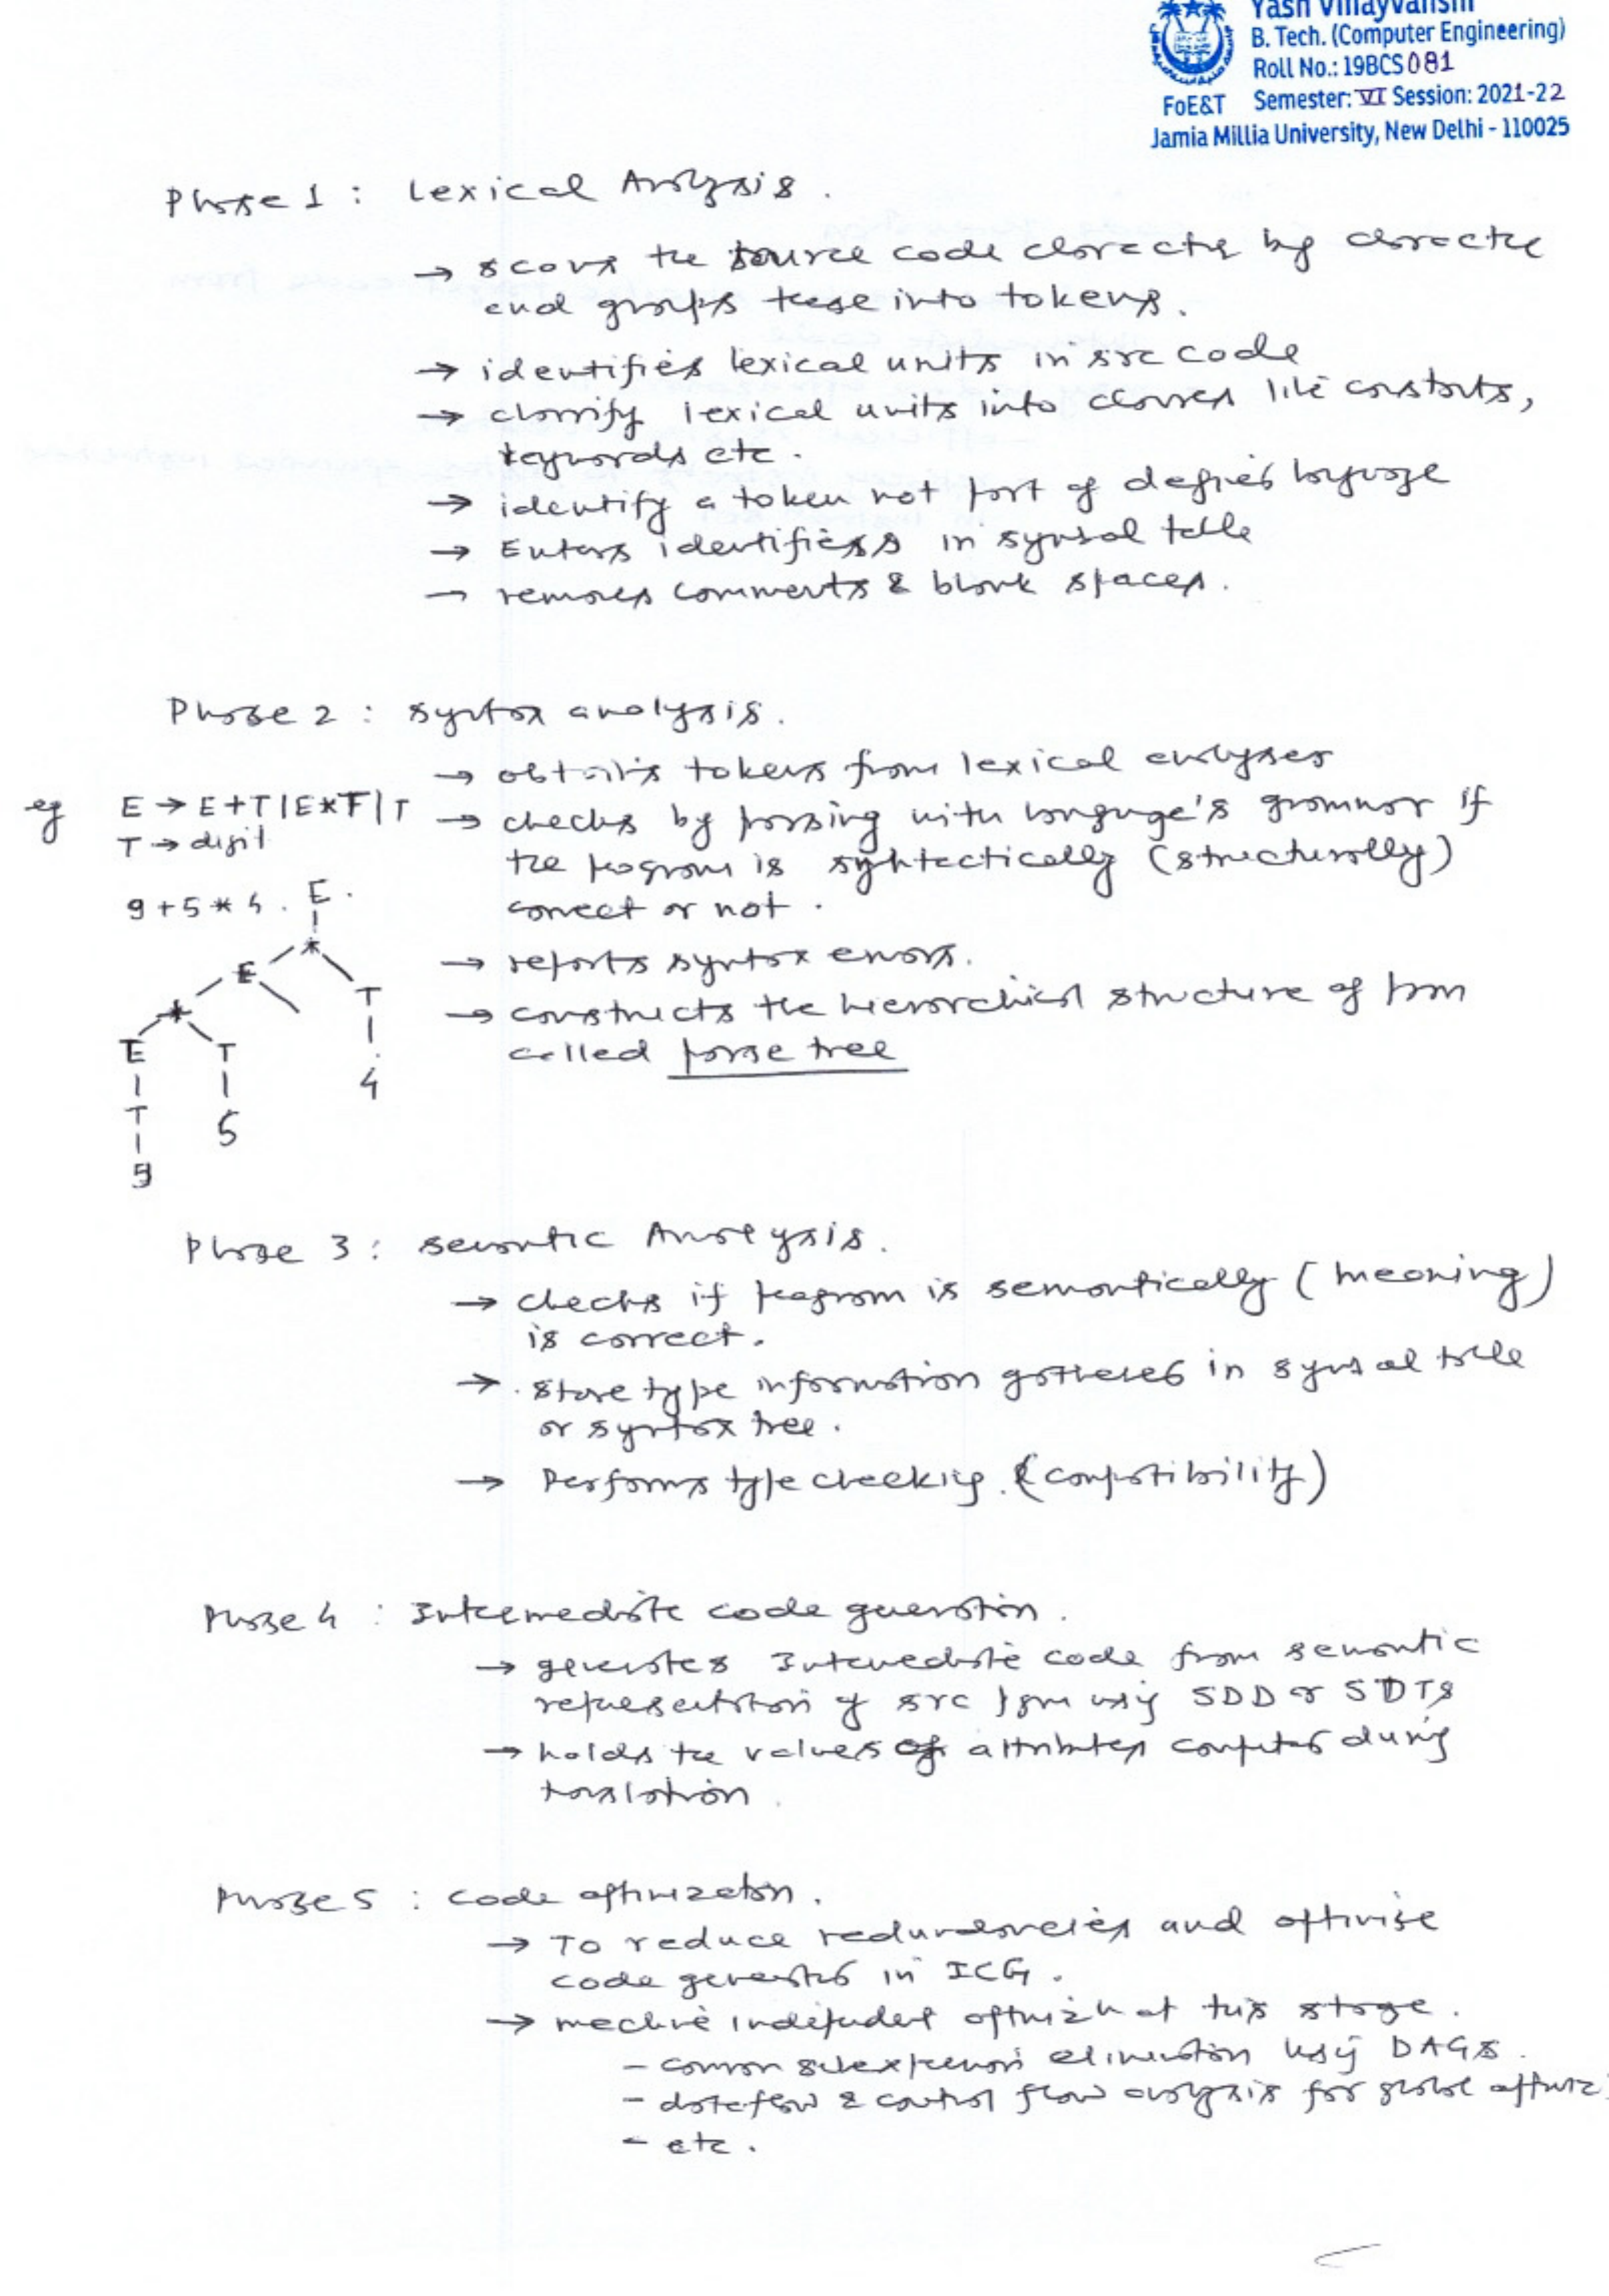 Yash Vinayvanshi
B. Tech. (Computer Engineering)
Roll No.: 19BCS081
FoE&T Semester: VI Session: 2021-22
Jamia Millia University, New Delhi - 110025
Phase 1 : Lexical Analysis.
→ scans the source code character by character
and groups these into tokens.
→ identifies lexical units in src code
→ classify lexical units into classes like constants,
keywords etc.
→ identify a token not part of defined language
→ Enters identifiers in symbol table
→ removes comments & blank spaces.
Phase 2 : syntax analysis.
→ obtains tokens from lexical analyser
eg E → E+T|E*T|T → checks by parsing with language's grammar if
T → digit the program is syntactically (structurally)
9+5*4. E. correct or not.
* → reports syntax errors.
E T → constructs the hierarchical structure of pgm
+ called parse tree
E T 4
T 5
9
Phase 3 : semantic Analysis.
→ checks if program is semantically (meaning)
is correct.
→ store type information gathered in symbol table
or syntax tree.
→ Performs type checking. (compatibility)
Phase 4 : Intermediate code generation.
→ generates Intermediate code from semantic
representation of src pgm using SDD or SDTS
→ holds the values of attributes computed during
translation.
Phase 5 : code optimization.
→ To reduce redundancies and optimise
code generated in ICG.
→ machine independent optmizn at this stage.
- common subexpression elimination using DAGs.
- dataflow & control flow analysis for global
- etc.